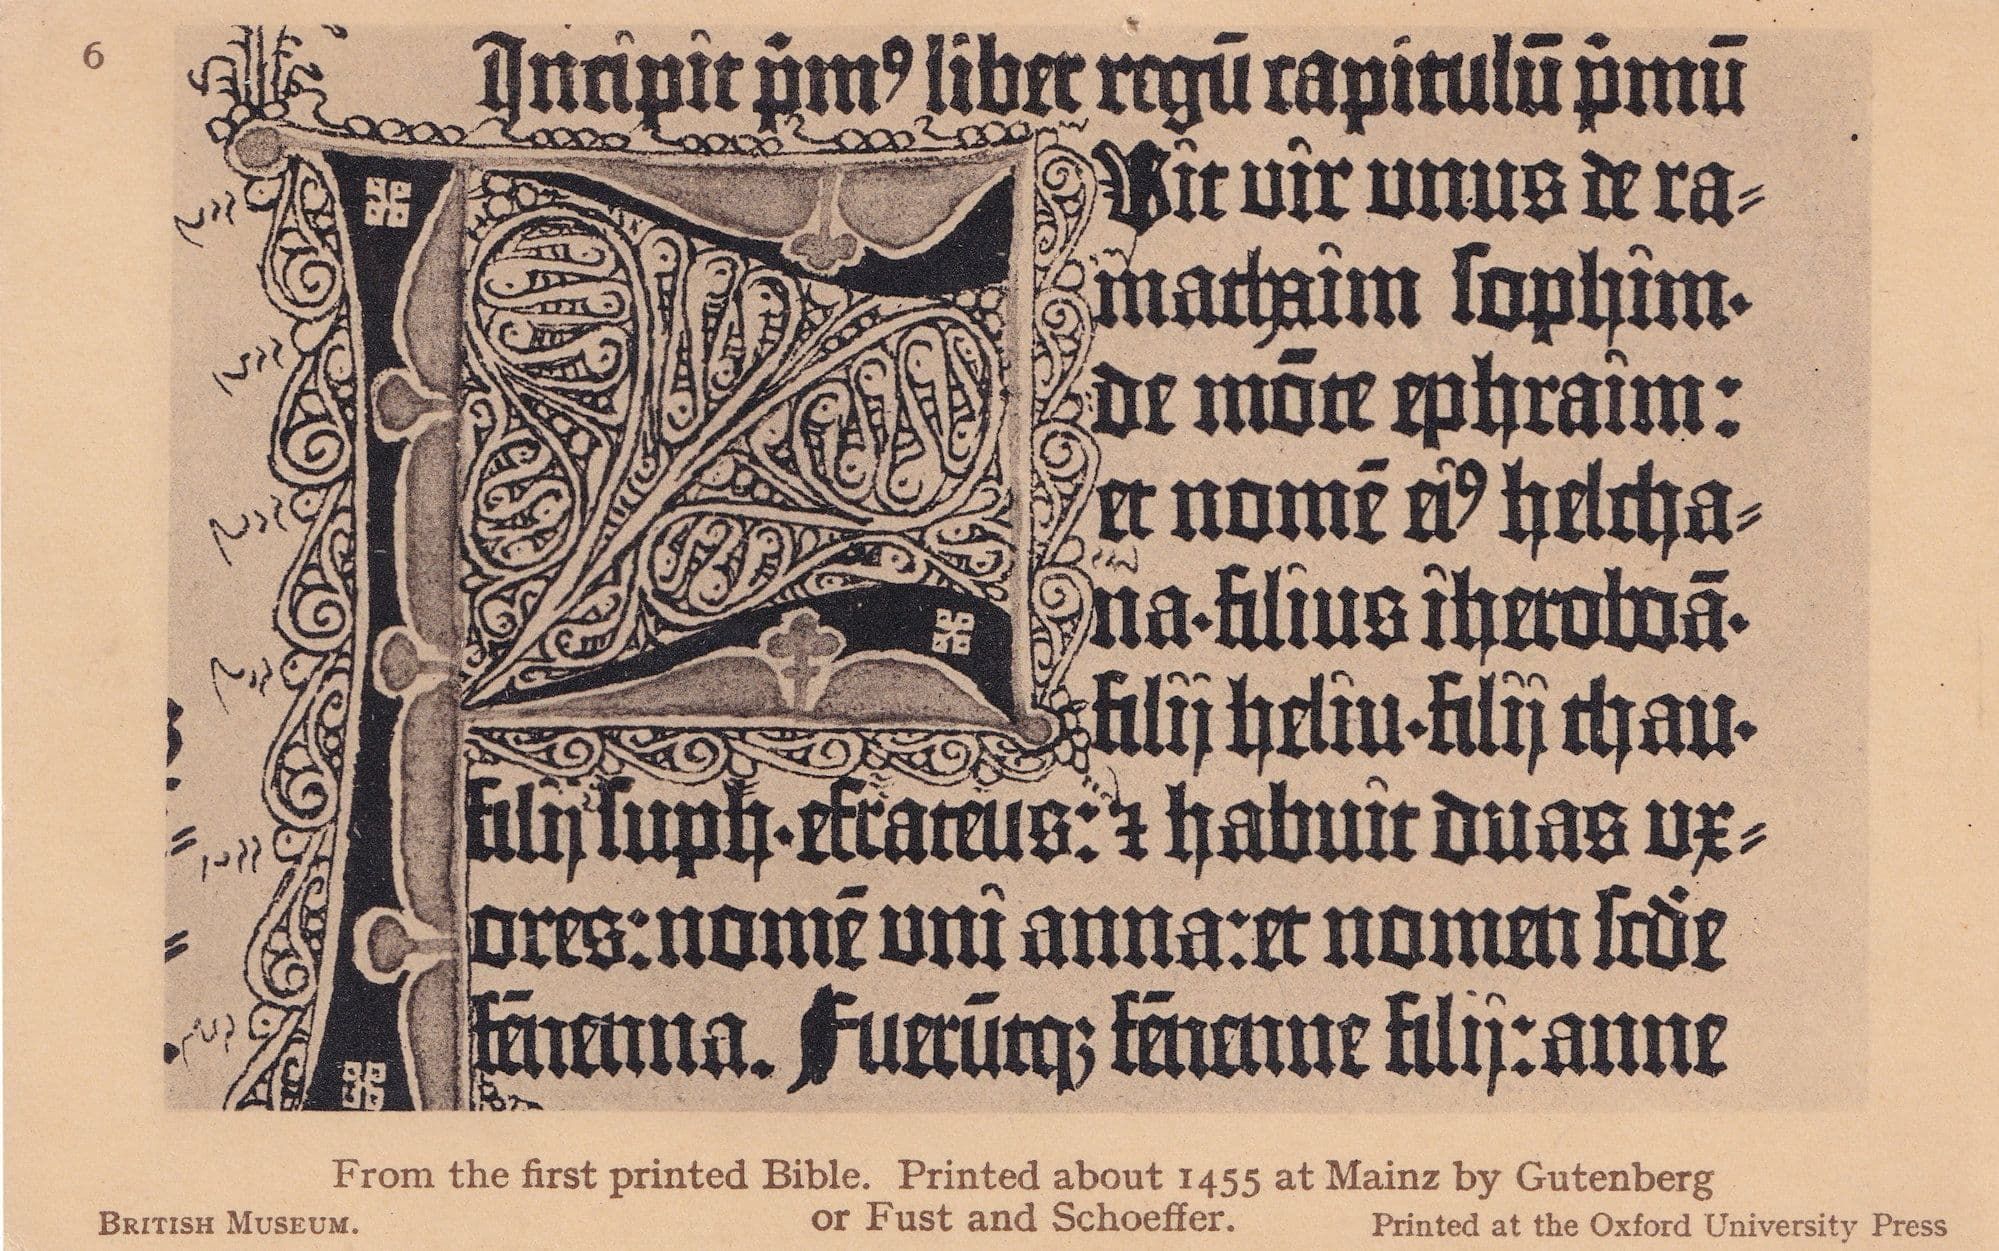 6
Incipit p̄mꝰ liber regū capitulū p̄mū
Vit vir unus de ra⸗
mathaim sophim·
de mōte ephraim:
et nomē eiꝰ helcha⸗
na·filius iheroboā·
filij heliu·filij thau·
filij suph·efrateus: ⁊ habuit duas ux⸗
ores: nomē uni anna: et nomen scd̄e
fēnenna. Fuerūtq; fēnenne filij: anne
From the first printed Bible. Printed about 1455 at Mainz by Gutenberg
or Fust and Schoeffer.
BRITISH MUSEUM.
Printed at the Oxford University Press